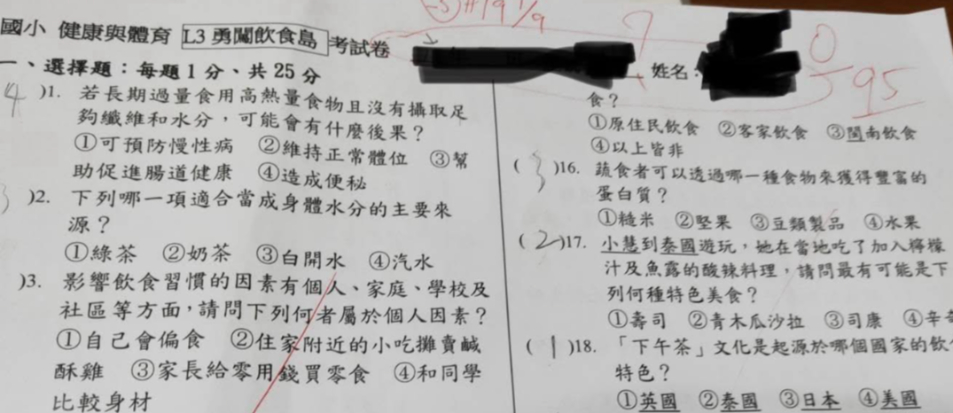 國小 健康與體育 L3 勇闖飲食島 考試卷
姓名:
95
一、選擇題:每題1分、共25分
4 )1. 若長期過量食用高熱量食物且沒有攝取足
夠纖維和水分,可能會有什麼後果?
①可預防慢性病 ②維持正常體位 ③幫
助促進腸道健康 ④造成便秘
3 )2. 下列哪一項適合當成身體水分的主要來
源?
①綠茶 ②奶茶 ③白開水 ④汽水
)3. 影響飲食習慣的因素有個人、家庭、學校及
社區等方面,請問下列何者屬於個人因素?
①自己會偏食 ②住家附近的小吃攤賣鹹
酥雞 ③家長給零用錢買零食 ④和同學
比較身材
食?
①原住民飲食 ②客家飲食 ③閩南飲食
④以上皆非
( 3 )16. 蔬食者可以透過哪一種食物來獲得豐富的
蛋白質?
①糙米 ②堅果 ③豆類製品 ④水果
( 2 )17. 小慧到泰國遊玩,她在當地吃了加入檸檬
汁及魚露的酸辣料理,請問最有可能是下
列何種特色美食?
①壽司 ②青木瓜沙拉 ③司康 ④辛
( 1 )18. 「下午茶」文化是起源於哪個國家的飲
特色?
①英國 ②泰國 ③日本 ④美國